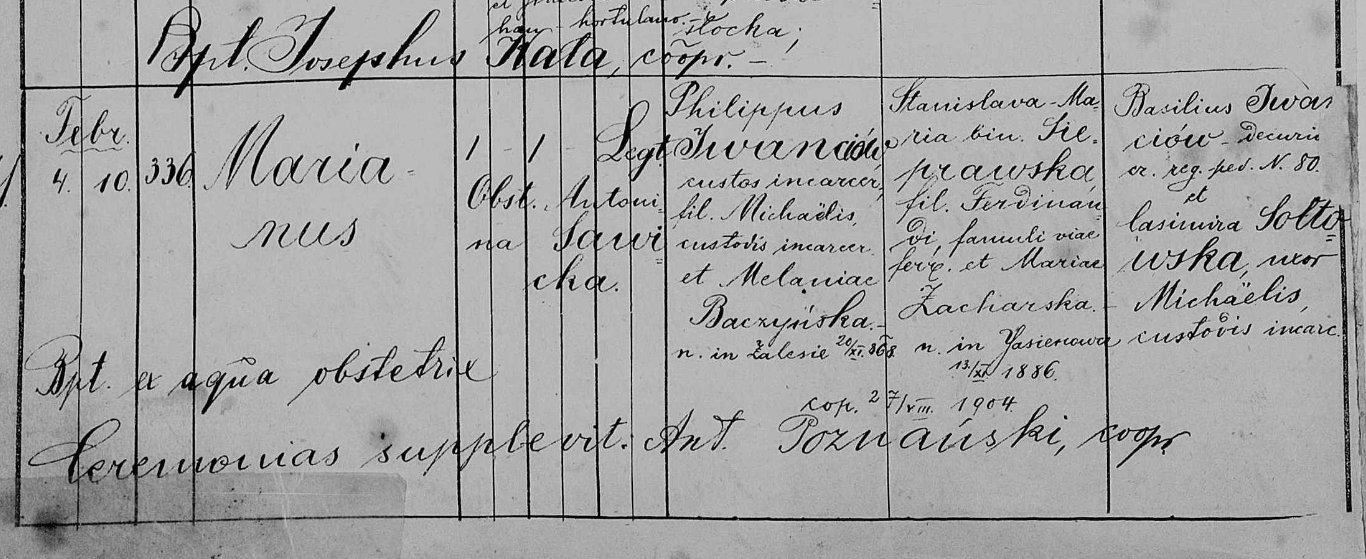 hau - hortulano. - słocka;
Bpt. Josephus Kała, coopr. -
Febr.
4. 10. 336 Maria-
nus
1 - 1 - Legt
Obst. Antoni-
na Sawi=
cka.
Philippus
Iwanciów,
custos incarcer,
fil. Michaëlis,
custodis incarcer
et Melaniae
Baczyńska. -
n. in Zalesie 20/XI. 868.
Stanislava-Ma-
ria bin. Sie-
prawska,
fil. Ferdinan-
di, famuli viae
ferr. et Mariae
Zacharska. -
n. in Yasienowa
13/XI. 1886.
cop. 27/VIII. 1904.
Basilius Iwan
ciów - decurio
er. reg. ped. N. 80.
et
Casimira Sołto=
wska, uxor
Michaëlis,
custodis incarc.
Bpt. ex aqua obstetrix
Ceremonias supplevit: Ant. Poznański, coopr.